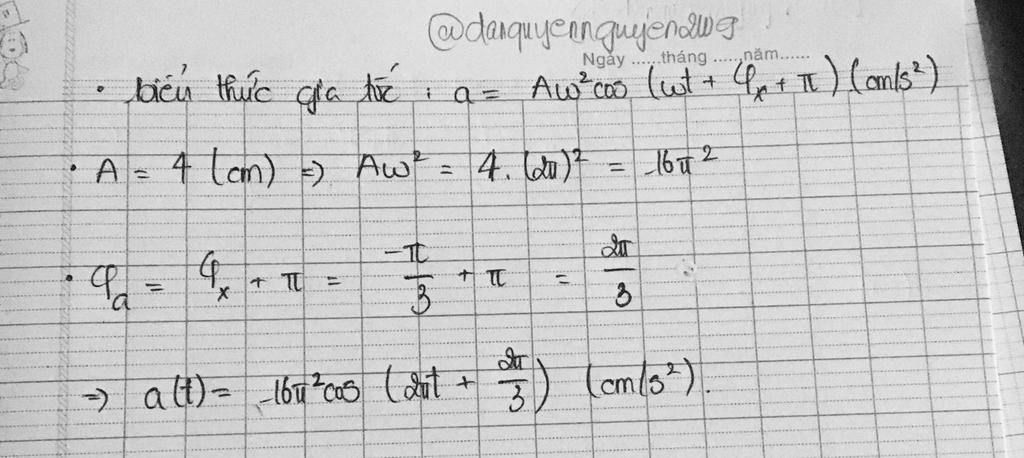 @danquyennguyen2009
Ngày ......tháng ......năm......
• biểu thức gia tốc : a = Aω² cos (ωt + φₓ + π) (cm/s²)
• A = 4 (cm) => Aω² = 4. (2π)² = 16π²
• φₐ = φₓ + π = -π/3 + π = 2π/3
=> a(t) = 16π² cos (2πt + 2π/3) (cm/s²).